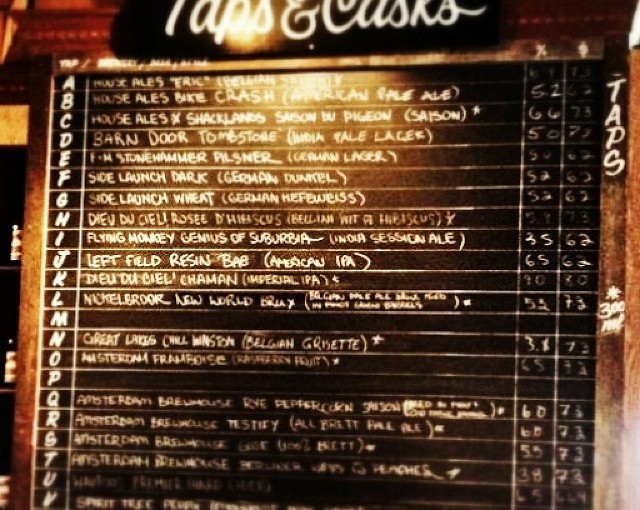 Taps & Casks
TAP / BREWERY, BEER, STYLE % $
A HOUSE ALES "ERIC" (BELGIAN
B HOUSE ALES BIKE CRASH (AMERICAN PALE ALE) 5.2 62
C HOUSE ALES X SHACKLANDS SAISON DU PIGEON (SAISON) * 66 73
D BARN DOOR TOMBSTONE (INDIA PALE LAGER) 50 73
E F+M STONEHAMMER PILSNER (GERMAN LAGER) 50 62
F SIDE LAUNCH DARK (GERMAN DUNKEL) 52 62
G SIDE LAUNCH WHEAT (GERMAN HEFEWEISS) 52 62
H DIEU DU CIEL! ROSEE D'HIBISCUS (BELGIAN WIT W HIBISCUS) * 59 73
I FLYING MONKEY GENIUS OF SUBURBIA (INDIA SESSION ALE) 35 62
J LEFT FIELD RESIN BAG (AMERICAN IPA) 65 62
K DIEU DU CIEL! CHAMAN (IMPERIAL IPA) * 90 80
L NICKELBROOK NEW WORLD BRUX (BELGIAN PALE ALE 52 73
M
N GREAT LAKES CHILL WINSTON (BELGIAN GRISETTE) * 3.8 73
O AMSTERDAM FRAMBOISE (RASPBERRY FRUIT) * 65 73
P
Q AMSTERDAM BREWHOUSE RYE PEPPERCORN SAISON * 60 73
R AMSTERDAM BREWHOUSE TESTIFY (ALL BRETT PALE ALE) * 60 73
S AMSTERDAM BREWHOUSE (100% BRETT) * 55 73
T AMSTERDAM BREWHOUSE BERLINER PEACHES * 38 73
U PREMIER
V SPIRIT TREE PERRY 65
TAPS
*